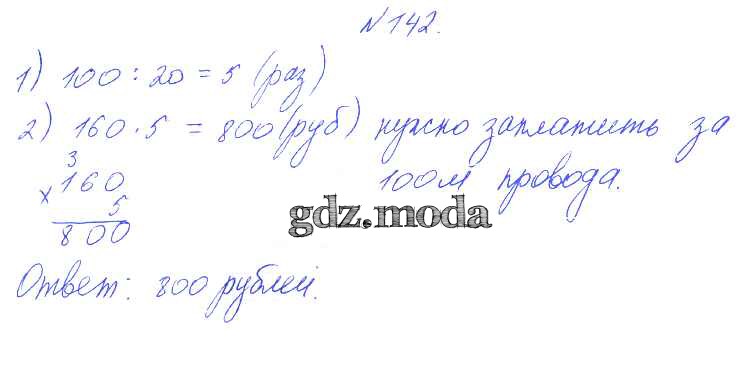 №142.
1) 100 : 20 = 5 (раз)
2) 160 · 5 = 800 (руб) нужно заплатить за
100м провода.
3
× 160
5
800
gdz.moda
Ответ: 800 рублей.